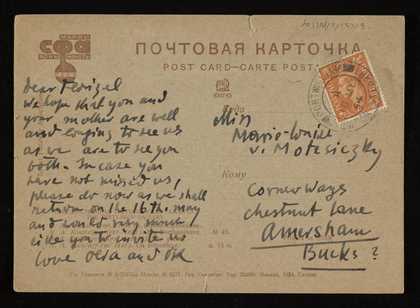 МАРКИ
СФА
ПОЧТОВАЯ КАРТОЧКА
POST CARD—CARTE POSTALE
Dear Florizel
we hope that you and
your mother are well
and longing to see us
as we are to see you
both. In case you
have not missed us,
please do now as we shall
return on the 16th. may
and would very much
like you to invite us
love Olda and OK
Куда
Miss
Marie-Louise
v. Motesiczky
Кому
Cornerways
Chestnut Lane
Amersham
Bucks?